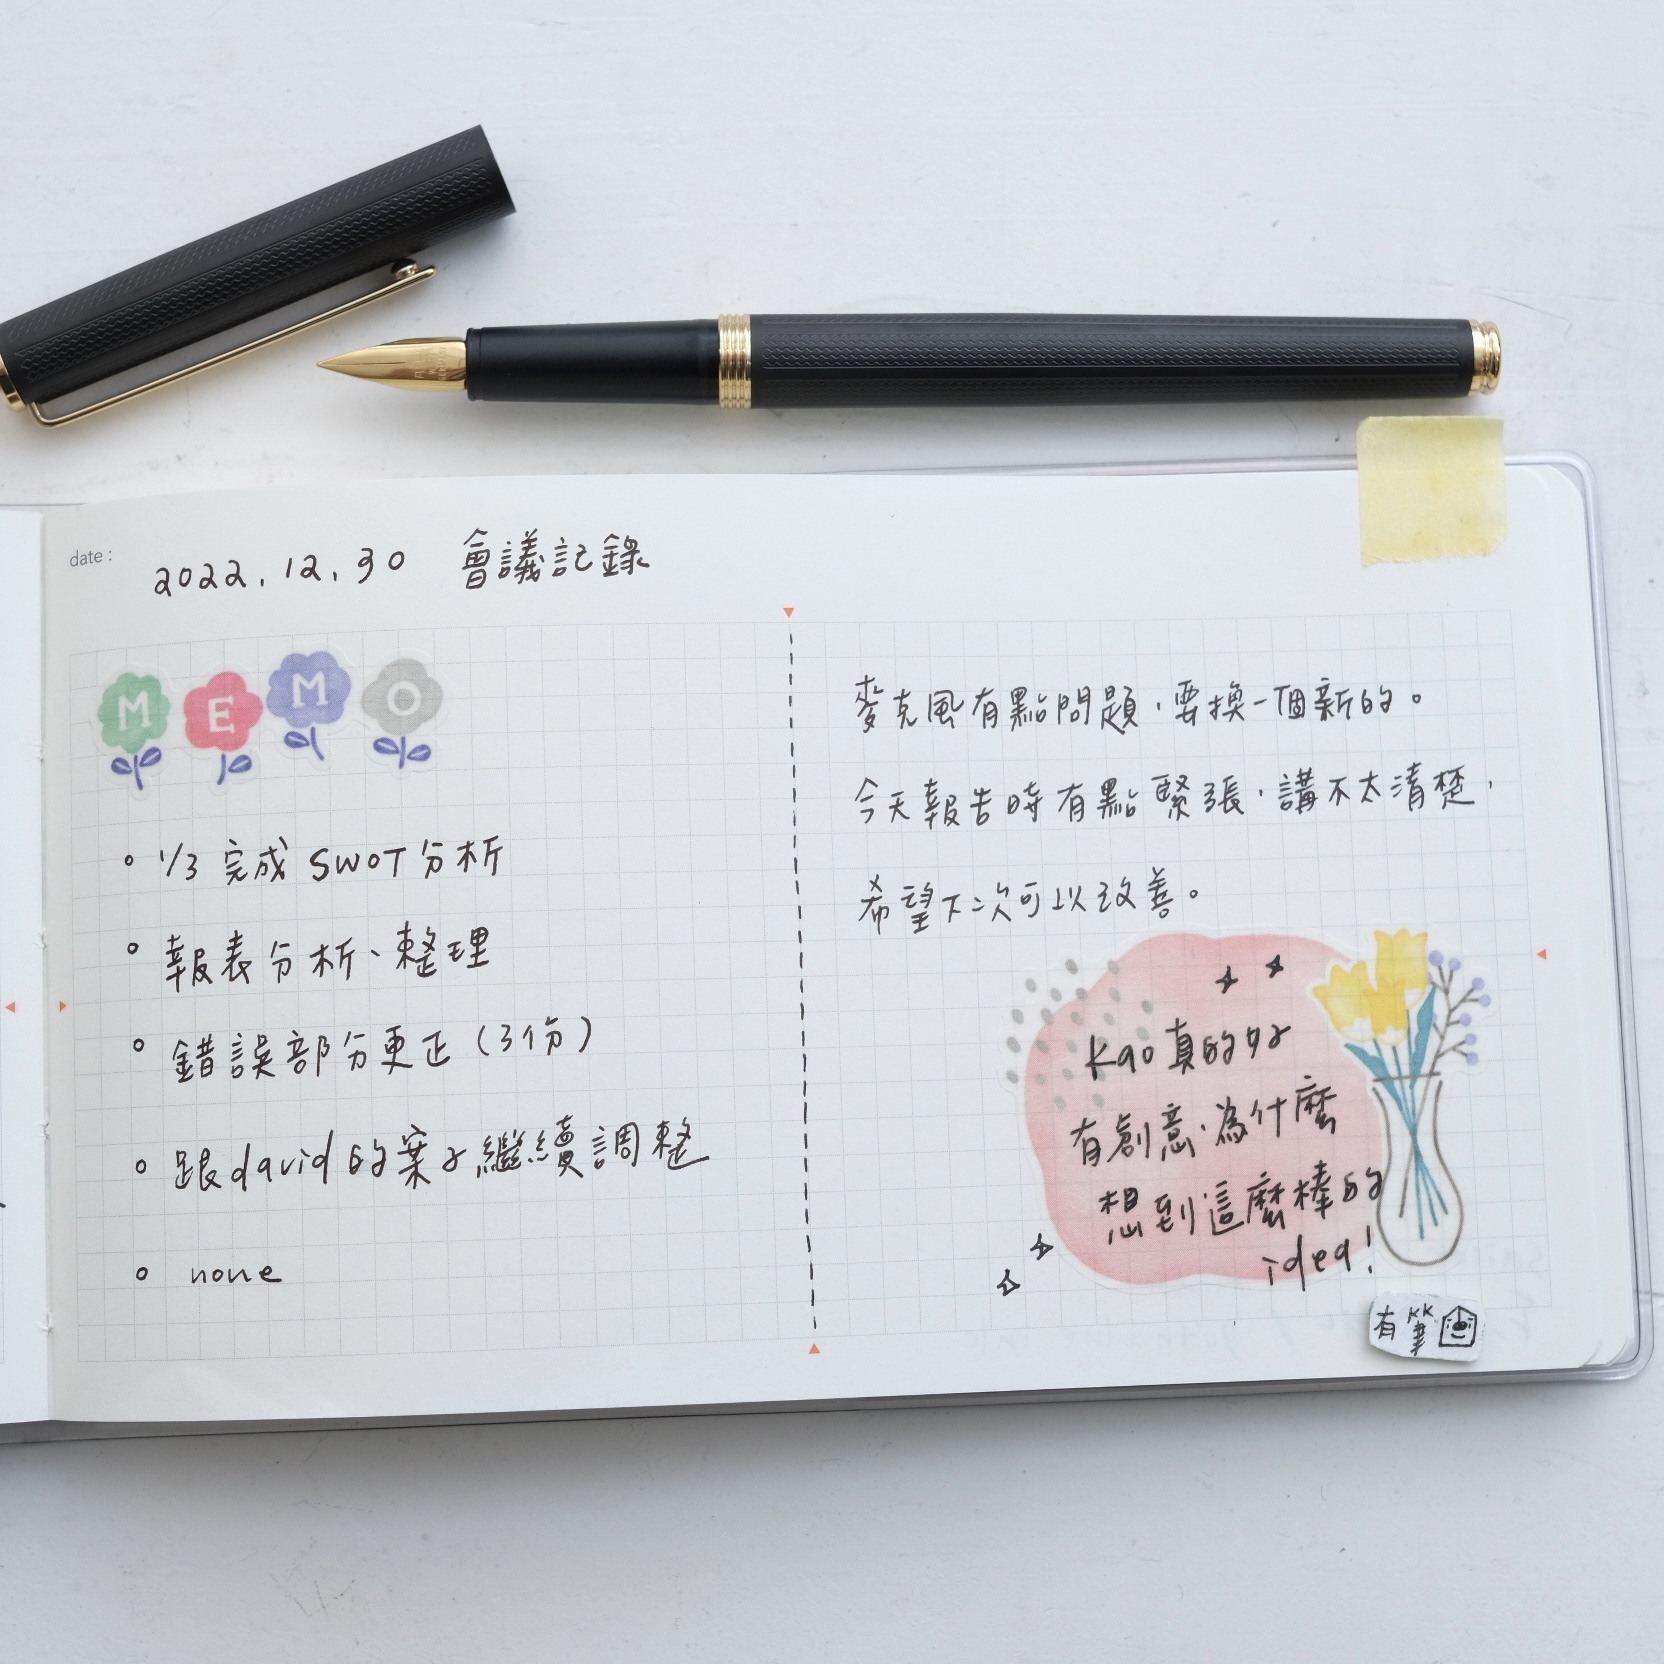 date：
2022.12.30 會議記錄
MEMO
1/3 完成 SWOT 分析
報表分析、整理
錯誤部分更正（3份）
跟david的案子繼續調整
none
麥克風有點問題，要換一個新的。
今天報告時有點緊張，講不太清楚，
希望下次可以改善。
Kao真的好
有創意，為什麼
想到這麼棒的
idea!
有筆